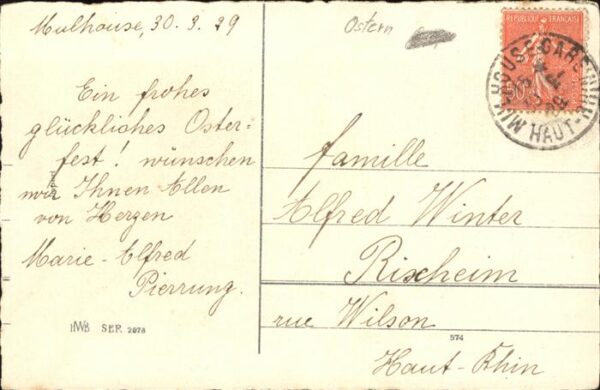 Mulhouse, 30.3.29
Ein frohes
glückliches Oster=
fest! wünschen
wir Ihnen Allen
von Herzen
Marie-Alfred
Pierrung.
HWB SER 2078
Ostern
REPUBLIQUE FRANÇAISE
MULHOUSE-GARE
HAUT-RHIN
Familie
Alfred Winter
Rixheim
rue Wilson
574
Haut-Rhin